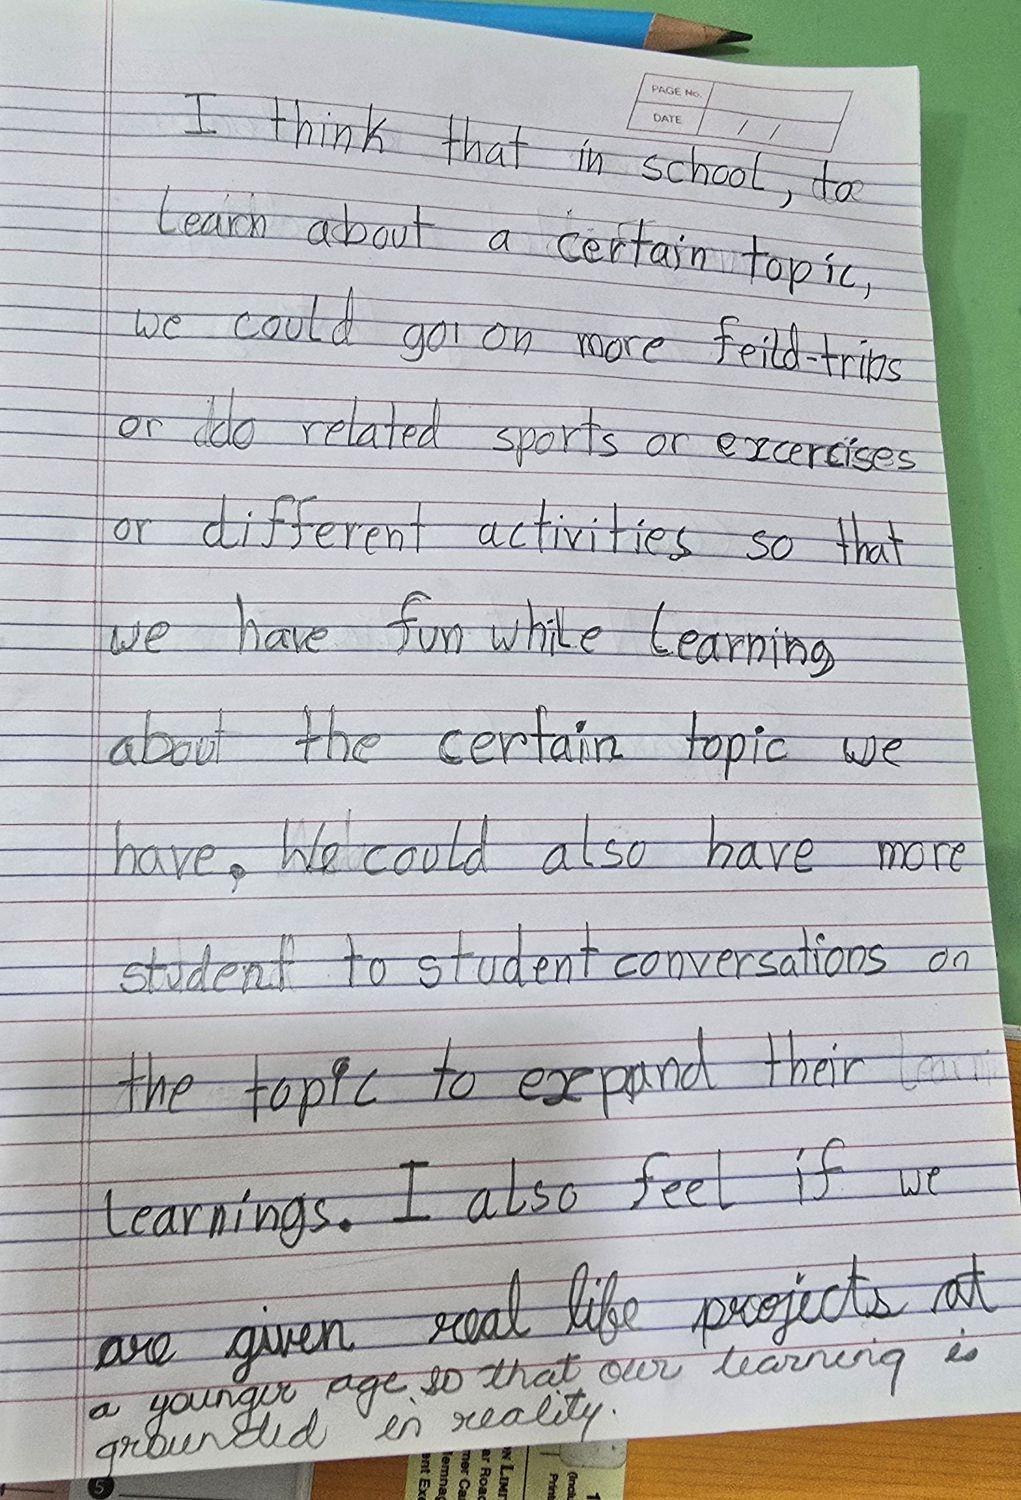 PAGE No.
DATE / /
I think that in school, to
learn about a certain topic,
we could go on more feild-trips
or do related sports or excercises
or different activities so that
we have fun while learning
about the certain topic we
have. We could also have more
student to student conversations on
the topic to expand their
learnings. I also feel if we
are given real life projects at
a younger age so that our learning is
grounded in reality.
5